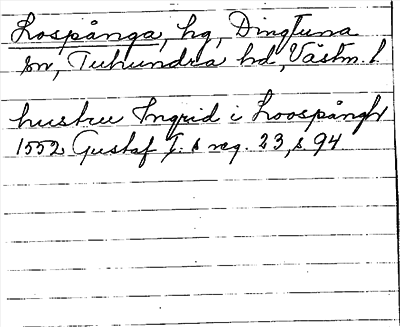 Lospånga, hg, Dingtuna
sn, Tuhundra hd, Västm. l.
hustru Ingrid i Loospångh
1552 Gustaf I. s reg. 23, s. 94